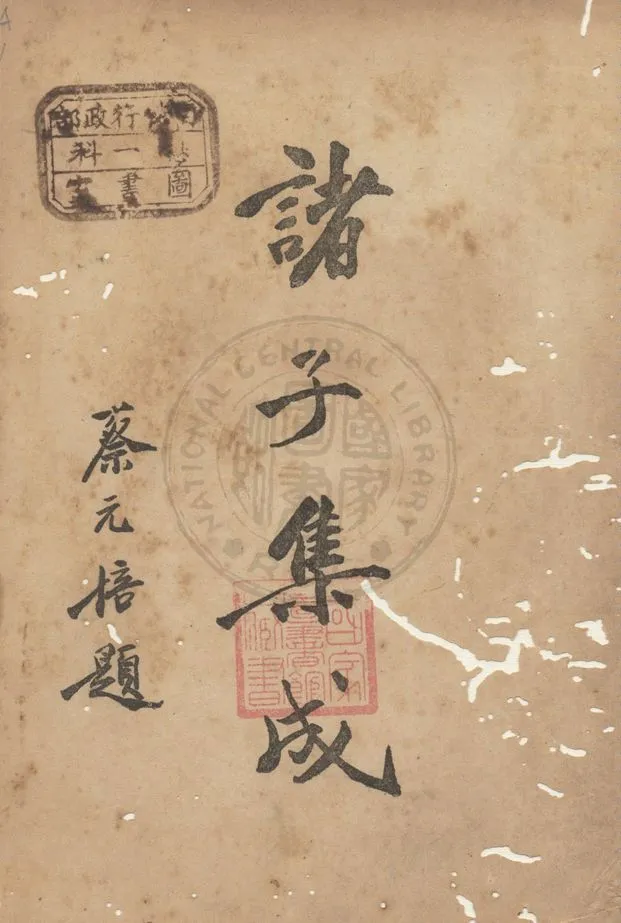 行政部
一科
圖書
諸子集成
蔡元培題
NATIONAL CENTRAL LIBRARY
國家圖書館